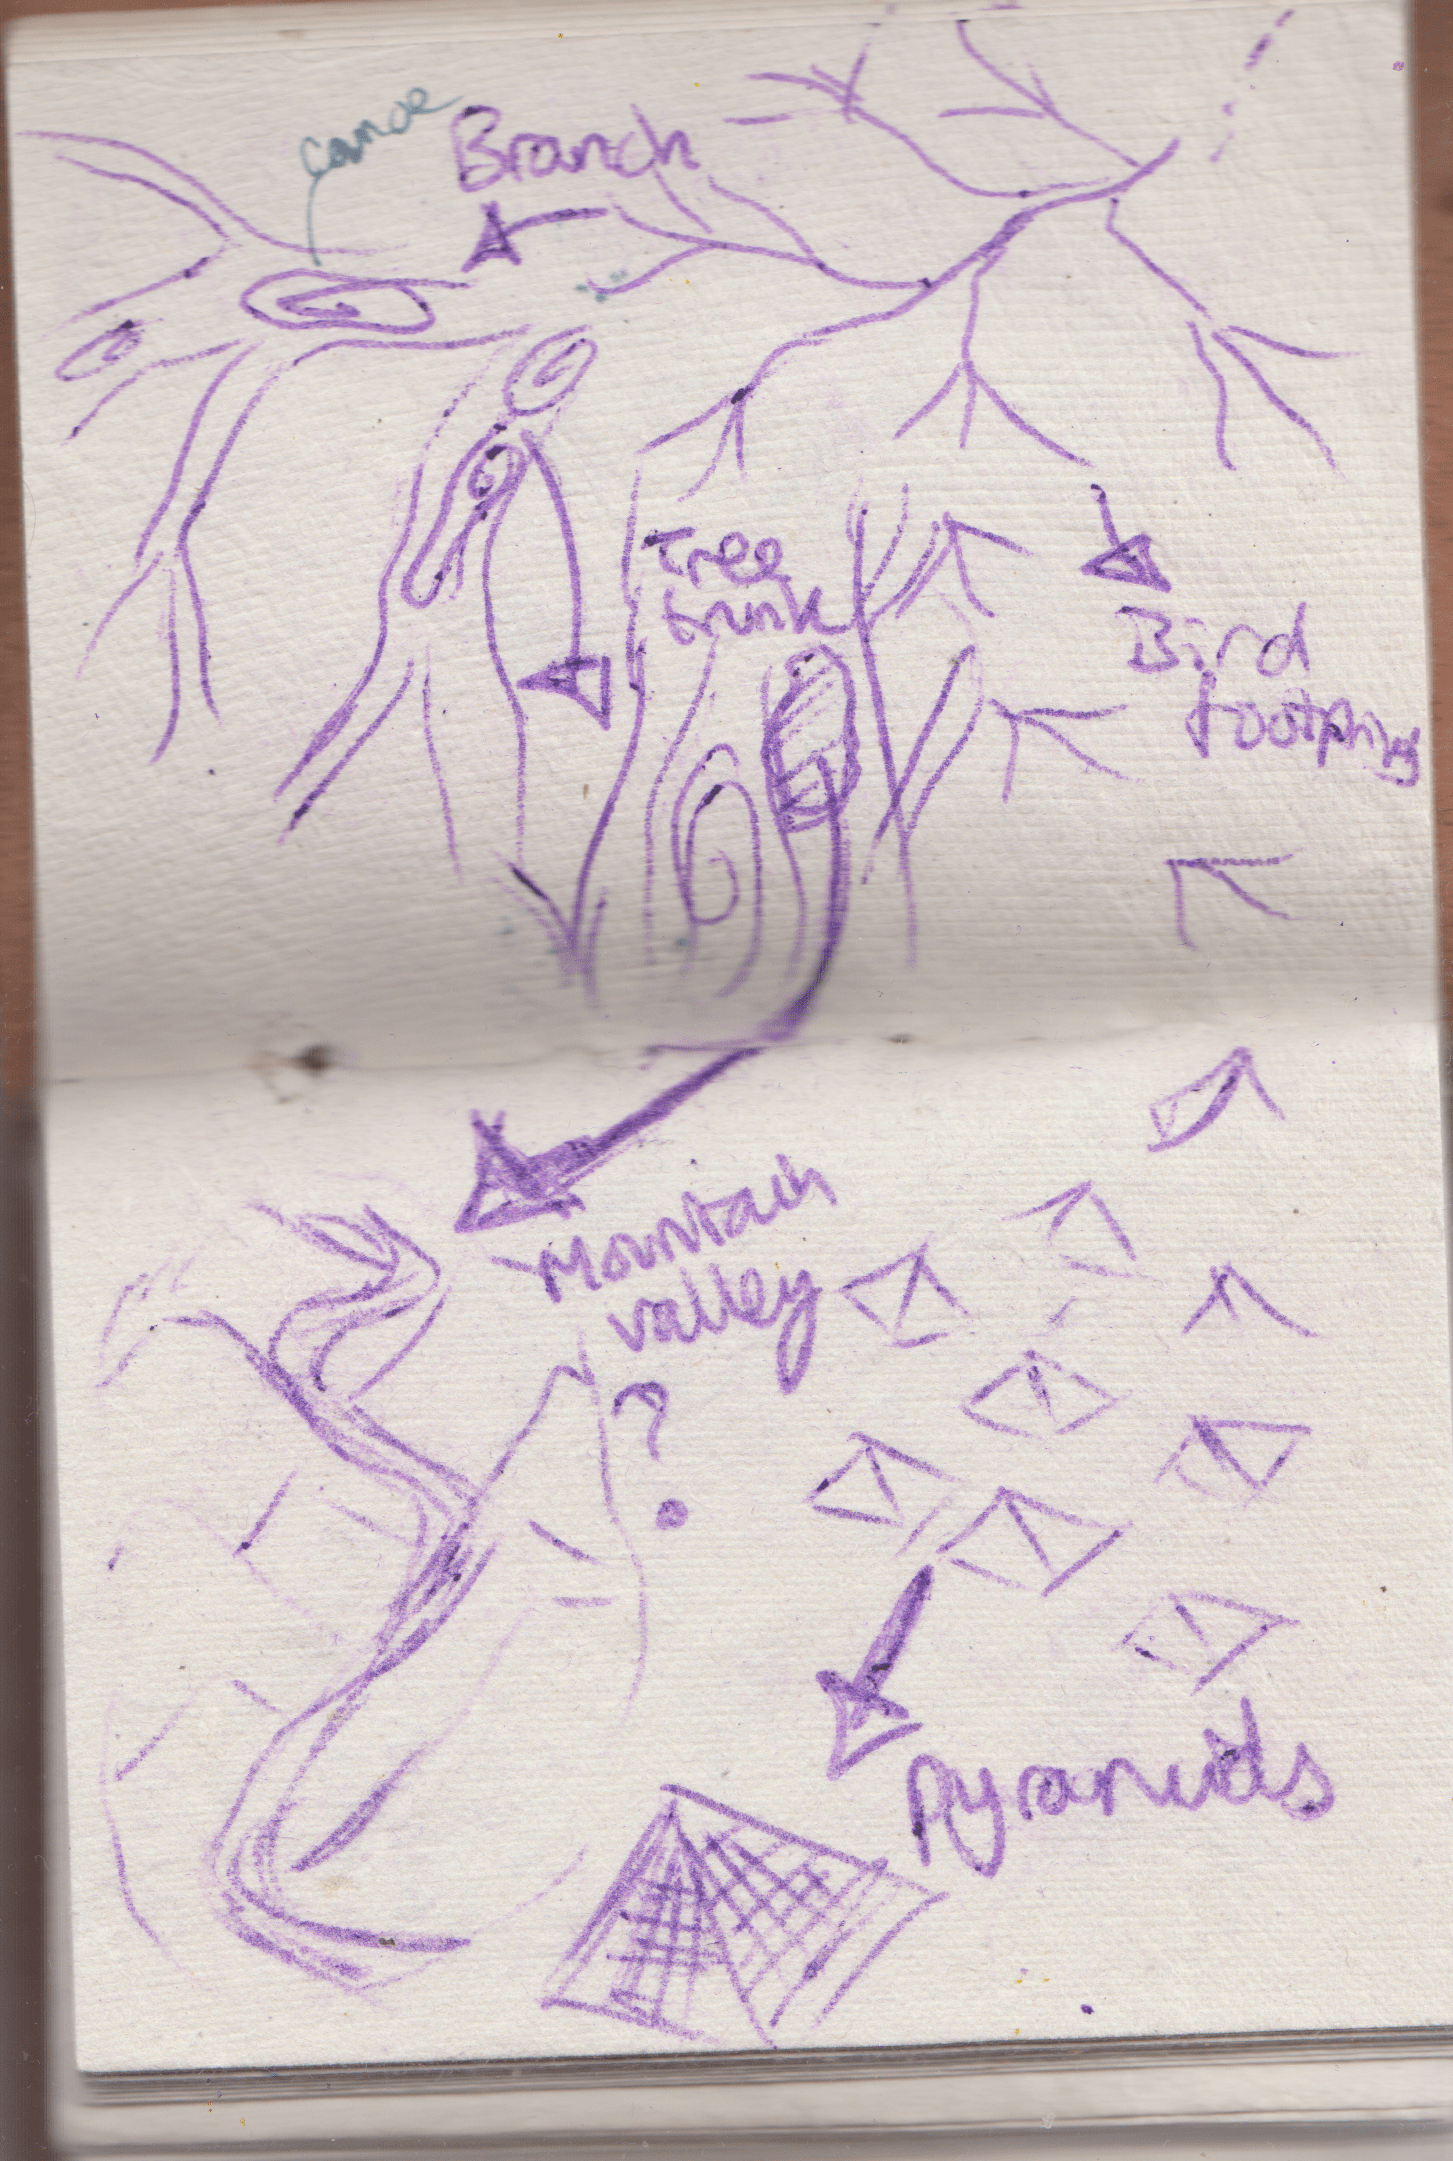 canoe
Branch
Tree
trunk
Bird
footprints
Mountain
valley
?
Pyramids